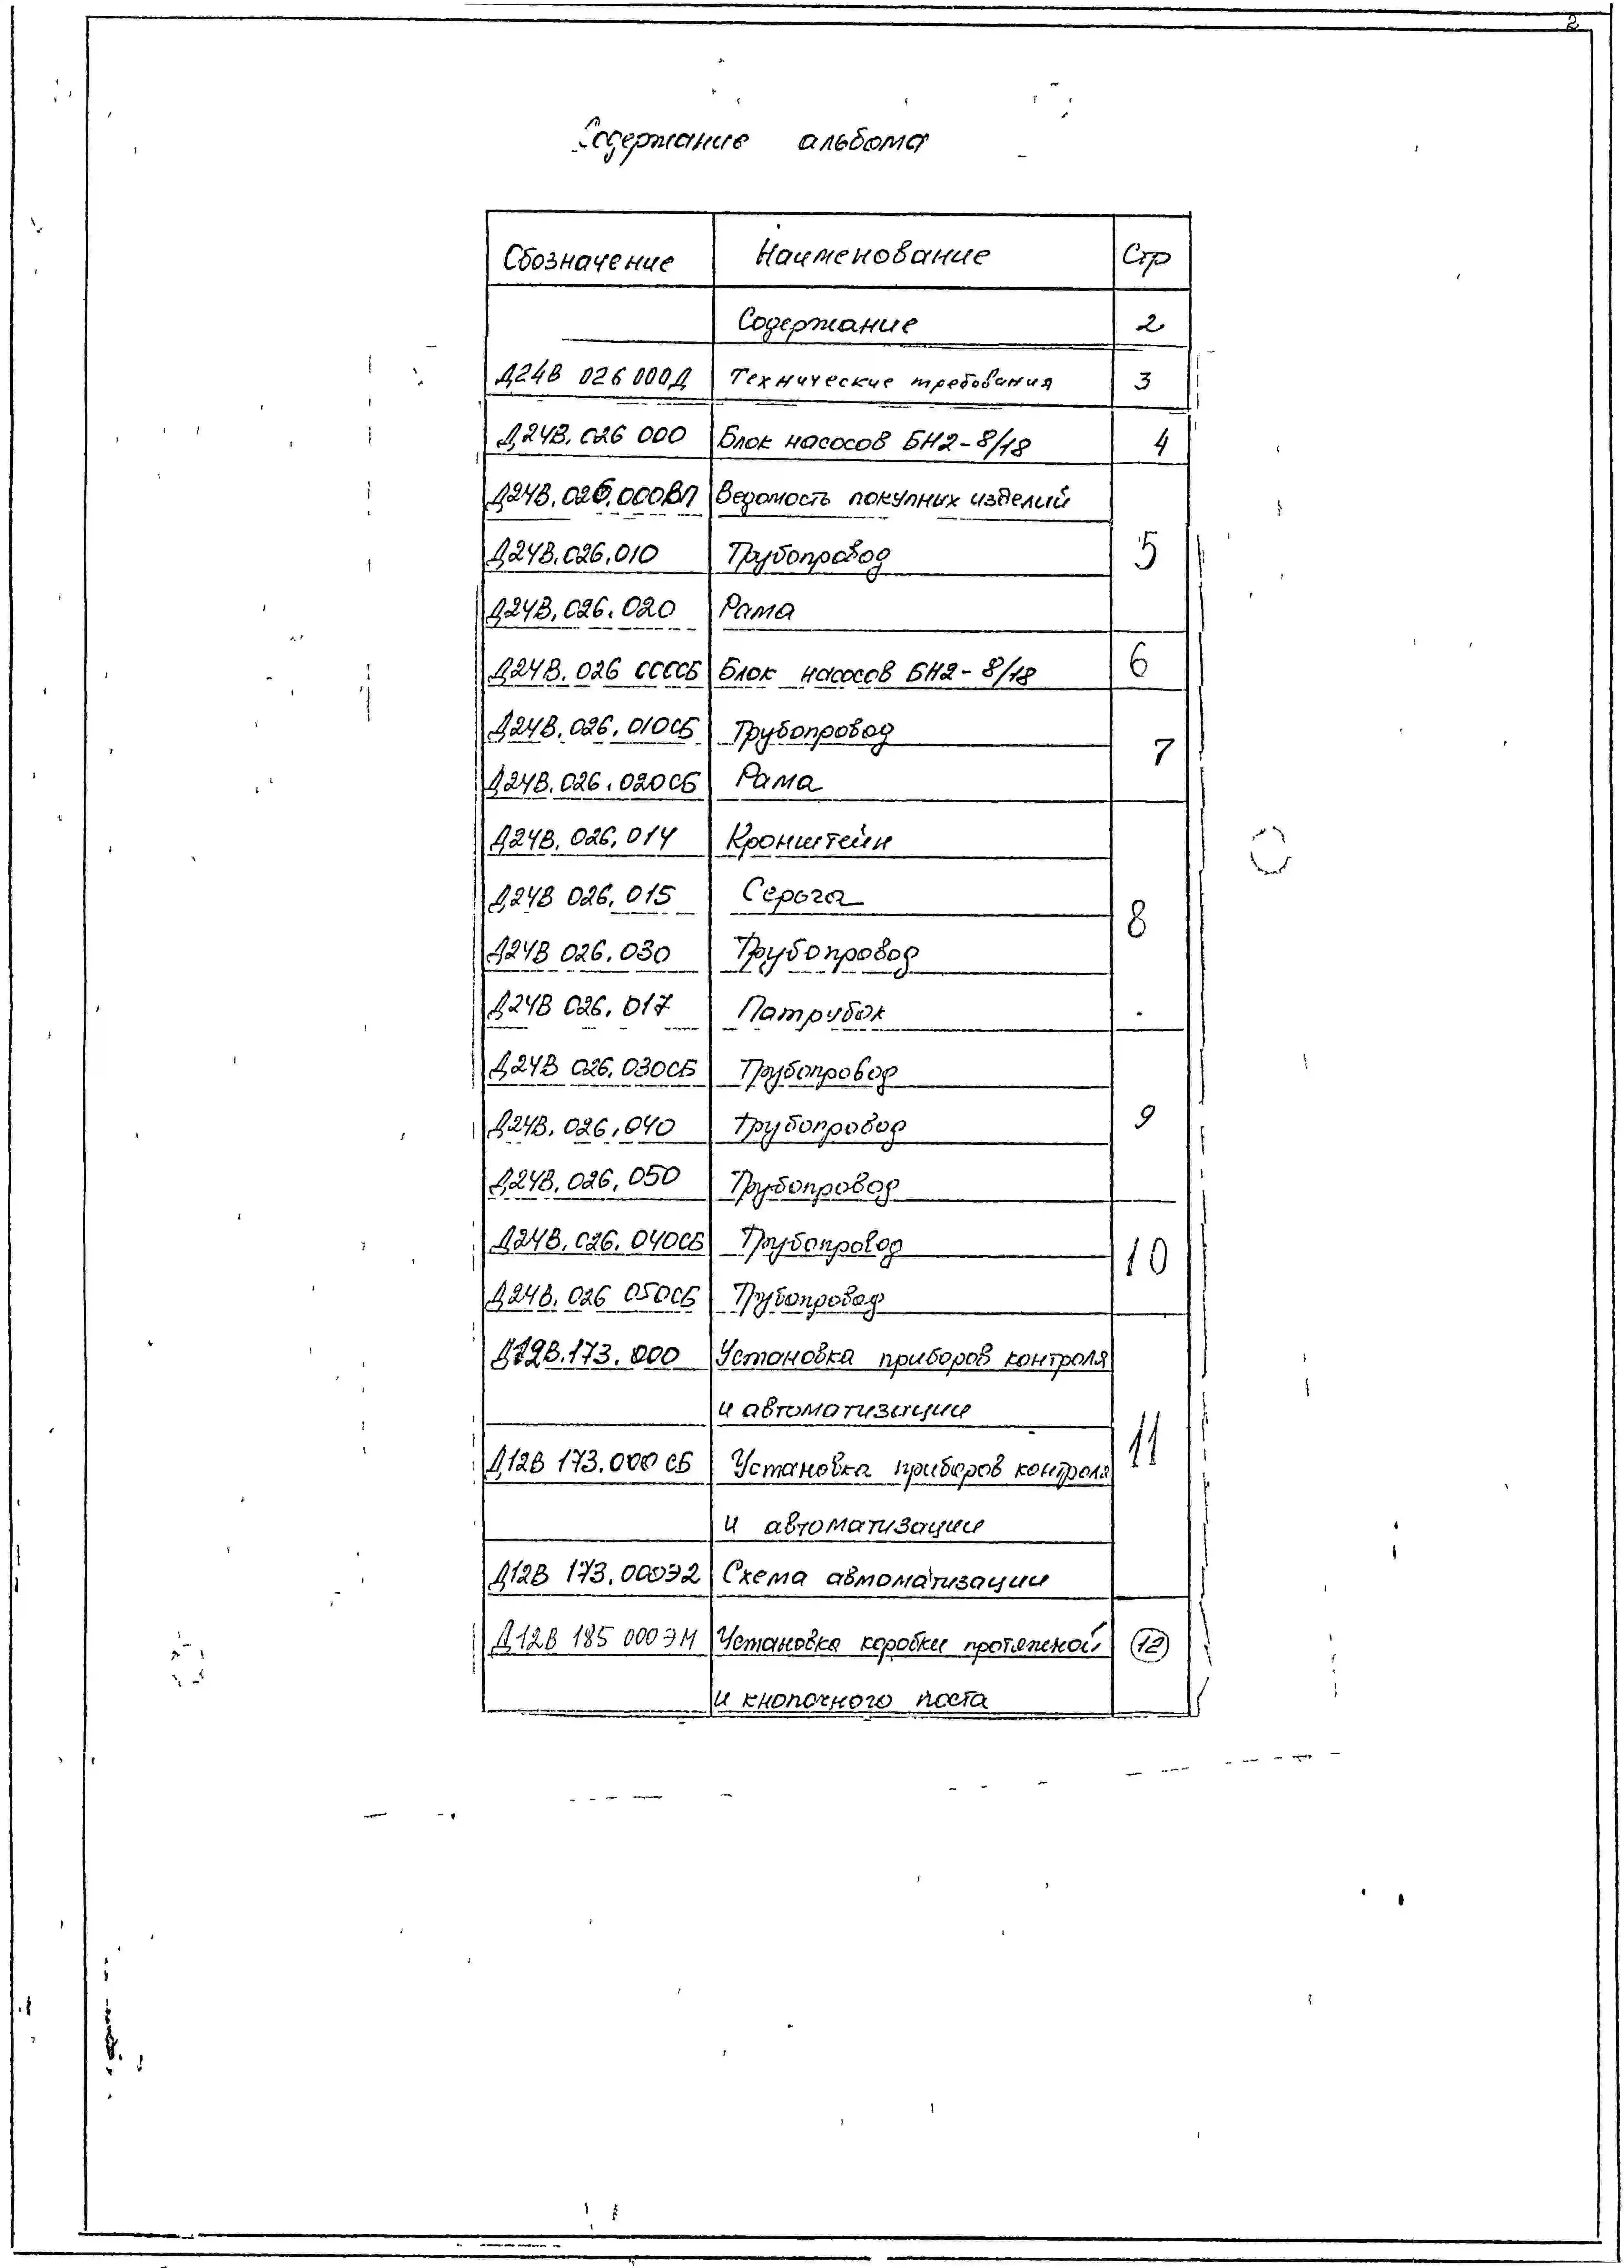 2
Содержание альбома
Обозначение Наименование Стр
Содержание 2
Д24В 026 000Д Технические требования 3
Д24В. 026 000 Блок насосов БН2-8/18 4
Д24В. 026.000ВП Ведомость покупных изделий
Д24В.026.010 Трубопровод 5
Д24В.026.020 Рама
Д24В.026 000СБ Блок насосов БН2-8/18 6
Д24В.026.010СБ Трубопровод 7
Д24В.026.020СБ Рама
Д24В.026.014 Кронштейн
Д24В 026.015 Серьга 8
Д24В 026.030 Трубопровод
Д24В 026.017 Патрубок
Д24В 026.030СБ Трубопровод
Д24В.026.040 Трубопровод 9
Д24В.026.050 Трубопровод
Д24В.026.040СБ Трубопровод 10
Д24В.026 050СБ Трубопровод
Д12В.173.000 Установка приборов контроля
и автоматизации 11
Д12В 173.000 СБ Установка приборов контроля
и автоматизации
Д12В 173.000Э2 Схема автоматизации
Д12В 185 000ЭМ Установка коробки протяжной 12
и кнопочного поста